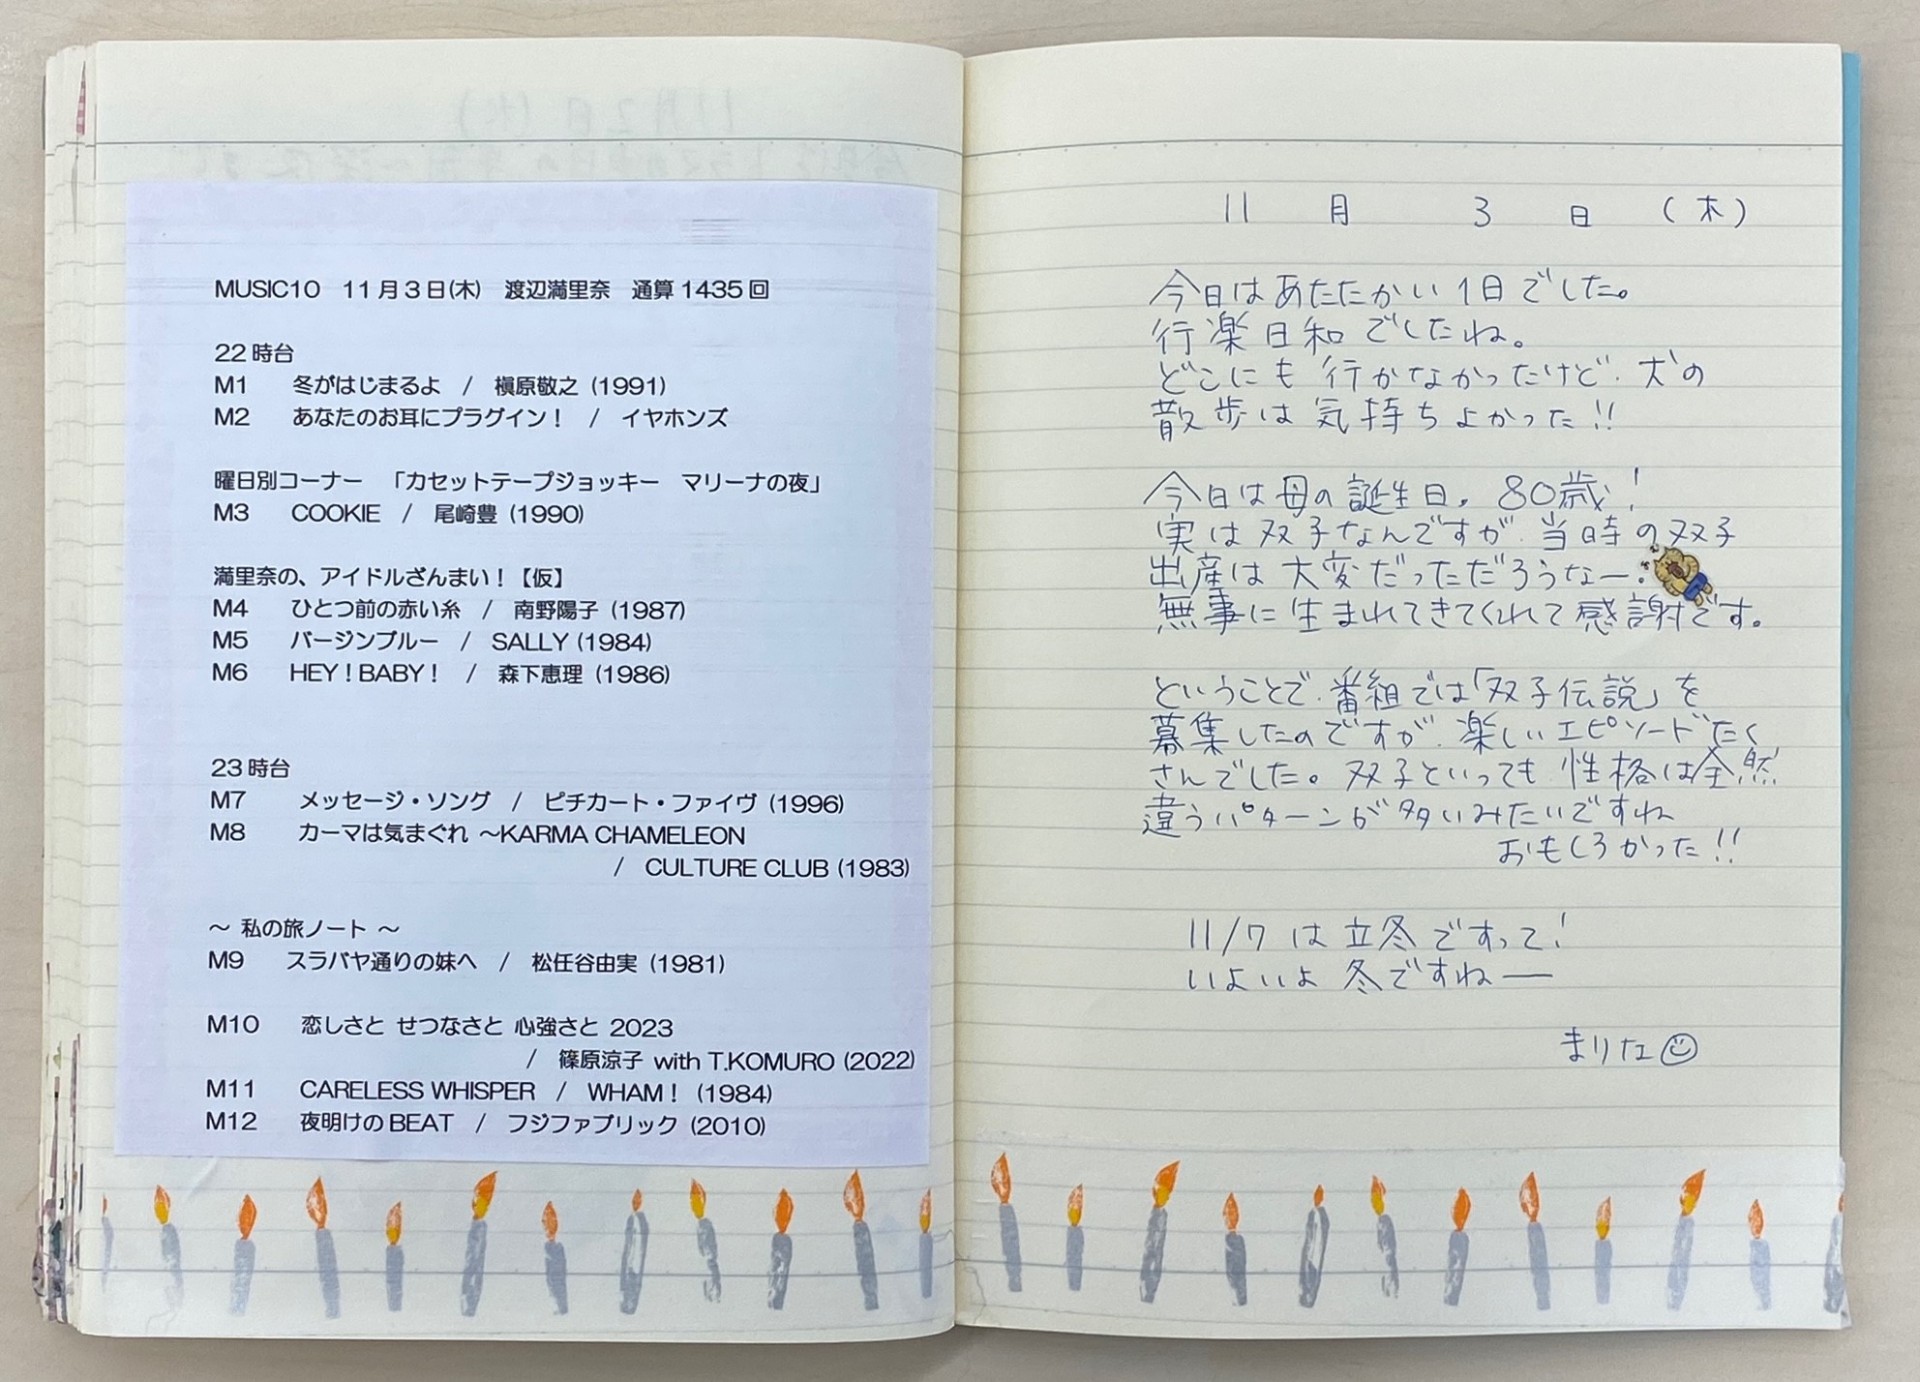 MUSIC10　11月3日(木)　渡辺満里奈　通算1435回
22時台
M1　冬がはじまるよ　/　槇原敬之 (1991)
M2　あなたのお耳にプラグイン！　/　イヤホンズ
曜日別コーナー　「カセットテープジョッキー　マリーナの夜」
M3　COOKIE　/　尾崎豊 (1990)
満里奈の、アイドルざんまい！【仮】
M4　ひとつ前の赤い糸　/　南野陽子 (1987)
M5　バージンブルー　/　SALLY (1984)
M6　HEY！BABY！　/　森下恵理 (1986)
23時台
M7　メッセージ・ソング　/　ピチカート・ファイヴ (1996)
M8　カーマは気まぐれ ～KARMA CHAMELEON
/　CULTURE CLUB (1983)
～ 私の旅ノート ～
M9　スラバヤ通りの妹へ　/　松任谷由実 (1981)
M10　恋しさと せつなさと 心強さと 2023
/　篠原涼子 with T.KOMURO (2022)
M11　CARELESS WHISPER　/　WHAM！ (1984)
M12　夜明けのBEAT　/　フジファブリック (2010)
11月3日(木)
今日はあたたかい1日でした。
行楽日和でしたね。
どこにも行かなかったけど、犬の
散歩は気持ちよかった!!
今日は母の誕生日。80歳！
実は双子なんですが、当時の双子
出産は大変だっただろうなー。
無事に生まれてきてくれて感謝です。
ということで、番組では「双子伝説」を
募集したのですが、楽しいエピソードたく
さんでした。双子といっても性格は全然
違うパターンが多いみたいですね
おもしろかった!!
11/7は立冬ですって！
いよいよ冬ですねー
まりな